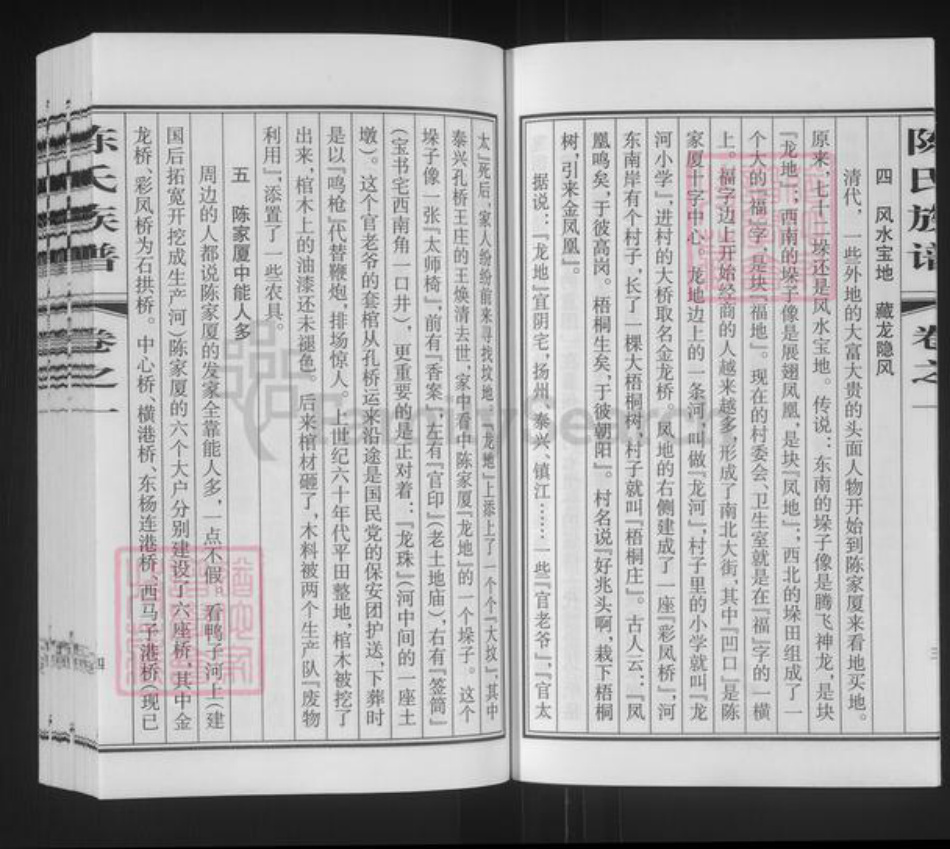 陈氏族谱
卷之一
三
四　风水宝地　藏龙隐凤
清代，一些外地的大富大贵的头面人物开始到陈家厦来看地买地。
原来，七十二垛还是风水宝地。传说：东南的垛子像是腾飞神龙，是块
『龙地』；西南的垛子像是展翅凤凰，是块『凤地』；西北的垛田组成了一
个大的『福』字，是块『福地』。现在的村委会、卫生室就是在『福』字的一横
上。福字边上开始经商的人越来越多，形成了南北大街，其中『凹口』是陈
家厦十字中心。龙地边上的一条河，叫做『龙河』，村子里的小学就叫『龙
河小学』，进村的大桥取名金龙桥。凤地的右侧建成了一座『彩凤桥』，河
东南岸有个村子，长了一棵大梧桐树，村子就叫『梧桐庄』。古人云：『凤
凰鸣矣，于彼高岗。梧桐生矣，于彼朝阳』。村名说『好兆头啊，栽下梧桐
树，引来金凤凰』。
据说：『龙地』宜阴宅，扬州、泰兴、镇江……一些『官老爷』、『官太
太』死后，家人纷纷前来寻找坟地。『龙地』上添上了一个个『大坟』，其中
泰兴孔桥王庄的王焕清去世，家中看中陈家厦『龙地』的一个垛子。这个
垛子像一张『太师椅』，前有『香案』，左有『官印』（老土地庙），右有『签筒』
（宝书宅西南角一口井），更重要的是正对着：『龙珠』（河中间的一座土
墩）。这个官老爷的套棺从孔桥运来沿途是国民党的保安团护送，下葬时
是以『鸣枪』代替鞭炮，排场惊人。上世纪六十年代平田整地，棺木被挖了
出来，棺木上的油漆还未褪色。后来棺材砸了，木料被两个生产队『废物
利用』，添置了一些农具。
五　陈家厦中能人多
周边的人都说陈家厦的发家全靠能人多，一点不假。看鸭子河上（建
国后拓宽开挖成生产河）陈家厦的六个大户分别建设了六座桥，其中金
龙桥、彩凤桥为石拱桥。中心桥、横港桥、东杨连港桥、西马子港桥（现已
陈氏族谱
卷之一
四
FamilySearch